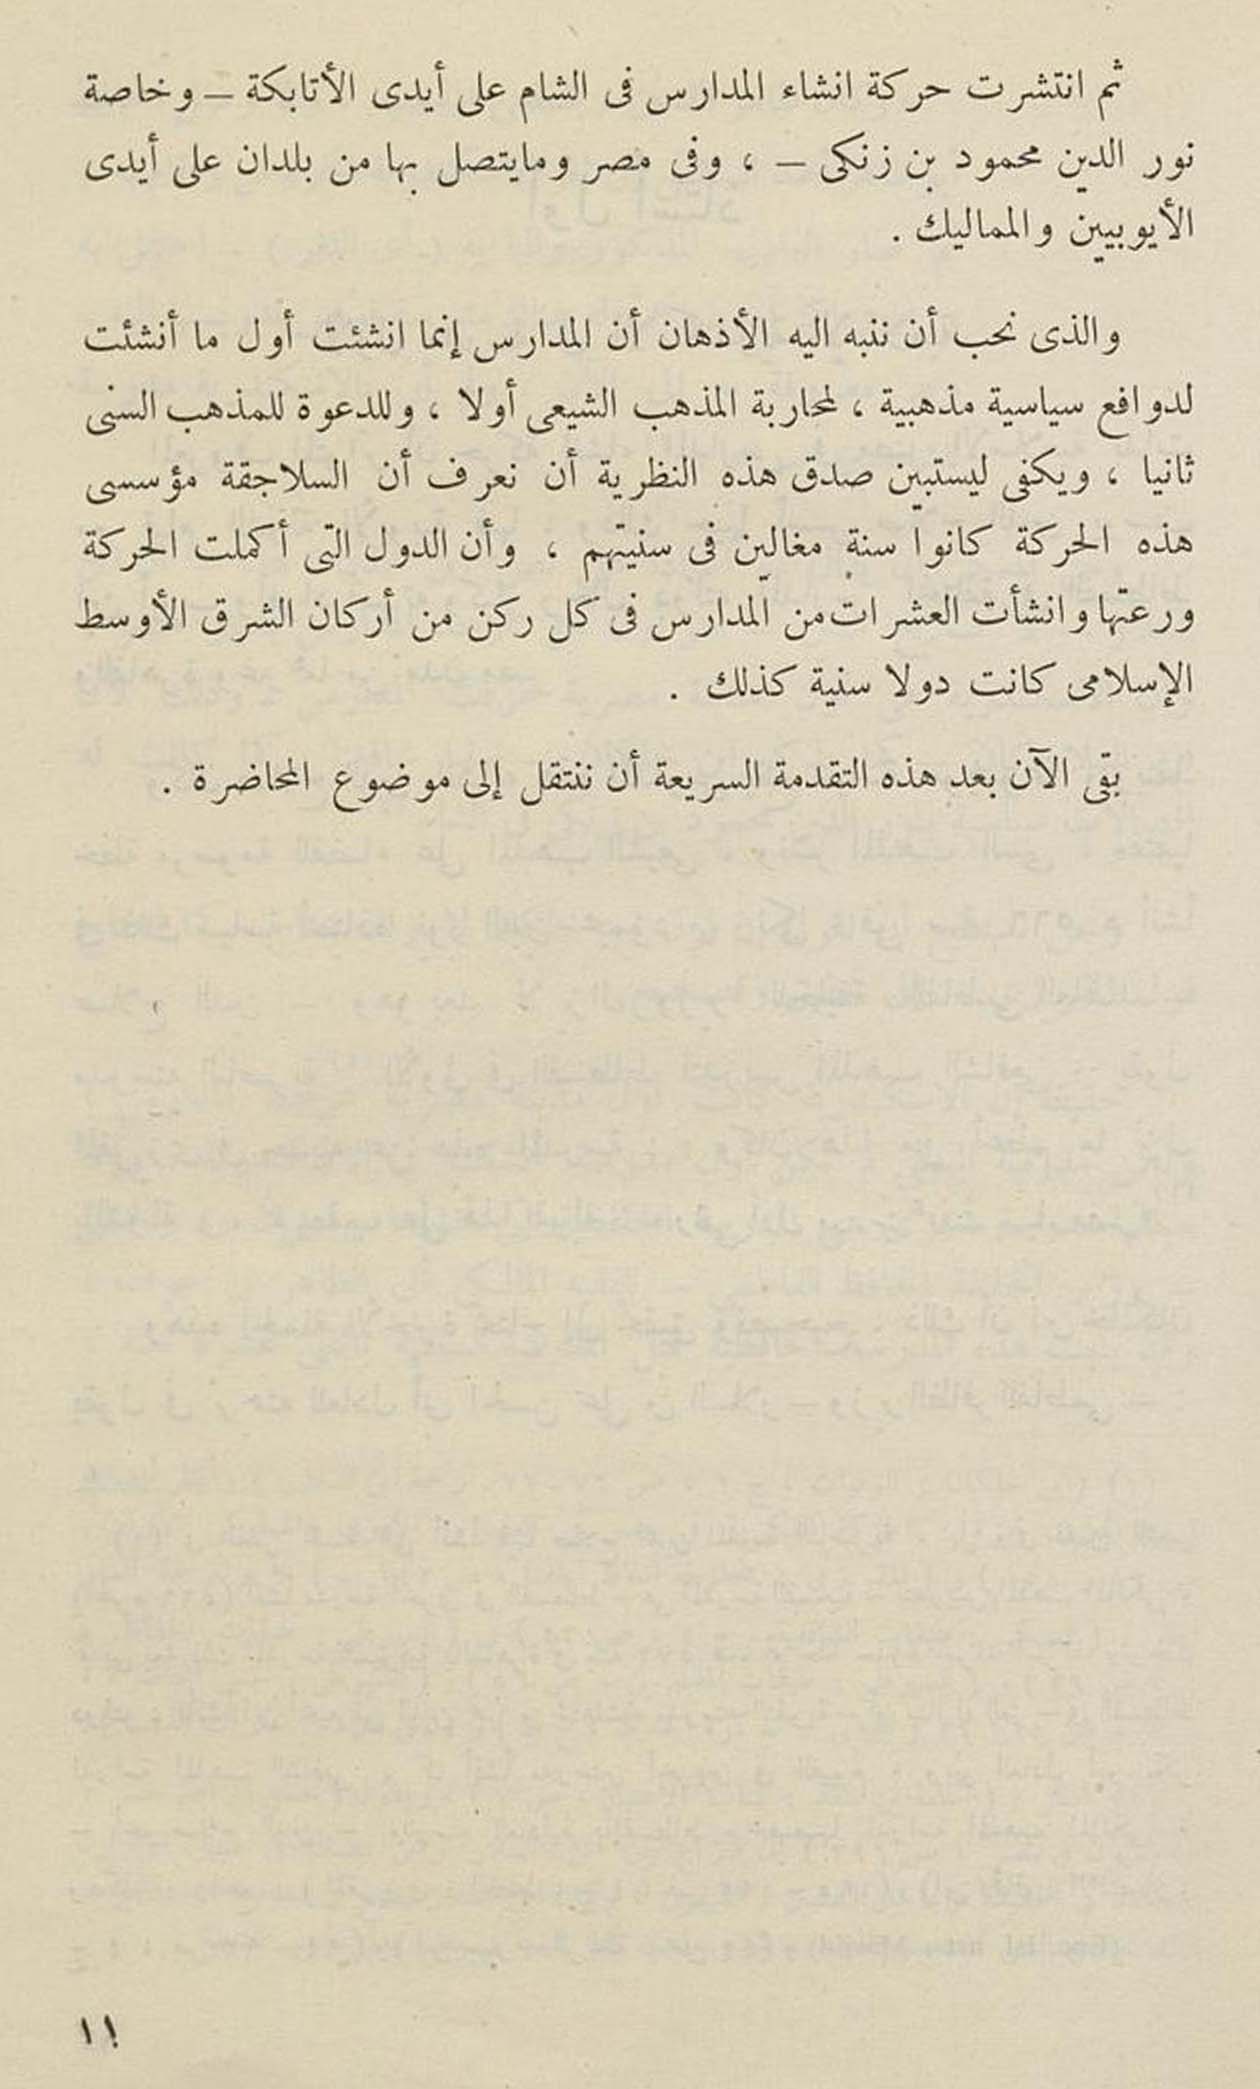 ثم انتشرت حركة انشاء المدارس فى الشام على أيدى الأتابكة – وخاصة
نور الدين محمود بن زنكى – ، وفى مصر ومايتصل بها من بلدان على أيدى
الأيوبيين والمماليك .
والذى نحب أن ننبه اليه الأذهان أن المدارس إنما انشئت أول ما أنشئت
لدوافع سياسية مذهبية ، لمحاربة المذهب الشيعى أولا ، وللدعوة للمذهب السنى
ثانيا ، ويكفى ليستبين صدق هذه النظرية أن نعرف أن السلاجقة مؤسسى
هذه الحركة كانوا سنة مغالين فى سنيتهم ، وأن الدول التى أكملت الحركة
ورعتها وانشأت العشرات من المدارس فى كل ركن من أركان الشرق الأوسط
الإسلامى كانت دولا سنية كذلك .
بقى الآن بعد هذه التقدمة السريعة أن ننتقل إلى موضوع المحاضرة .
١١